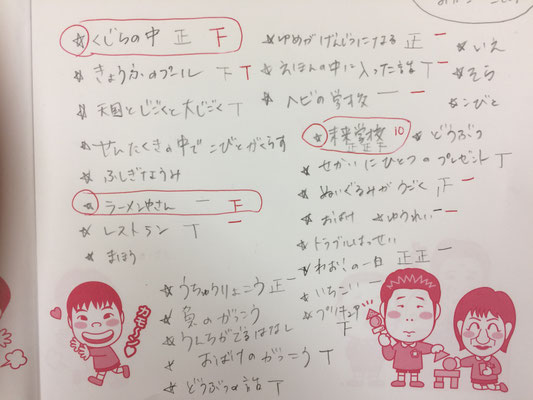 ☆くじらの中 正 下
☆きょうかのプール 下 T
☆天国とじごくと大じごく T
☆せんたくきの中でこびとがくらす
☆ふしぎなうみ
☆ラーメンやさん 一 下
☆レストラン T 一
☆まほう
☆うちゅうりょこう 正 一
☆魚のがっこう
☆うんちがでるはなし
☆おばけのがっこう T
☆どうぶつの話 T
☆ゆめがげんじつになる 正 一
☆えほんの中に入った話 T 一
☆ヘビの学校 一 一
☆未来学校 10
正 正 下
☆せかいにひとつのプレゼント T
☆ぬいぐるみがうごく 下 一
☆おばけ ☆ゆうれい 一 一
☆トラブルはっせい
☆わお!の一日 正 正 一
☆いちごい 一 一
☆プリキュア
下
☆いえ
☆そら
☆こびと
☆どうぶつ
カモーン